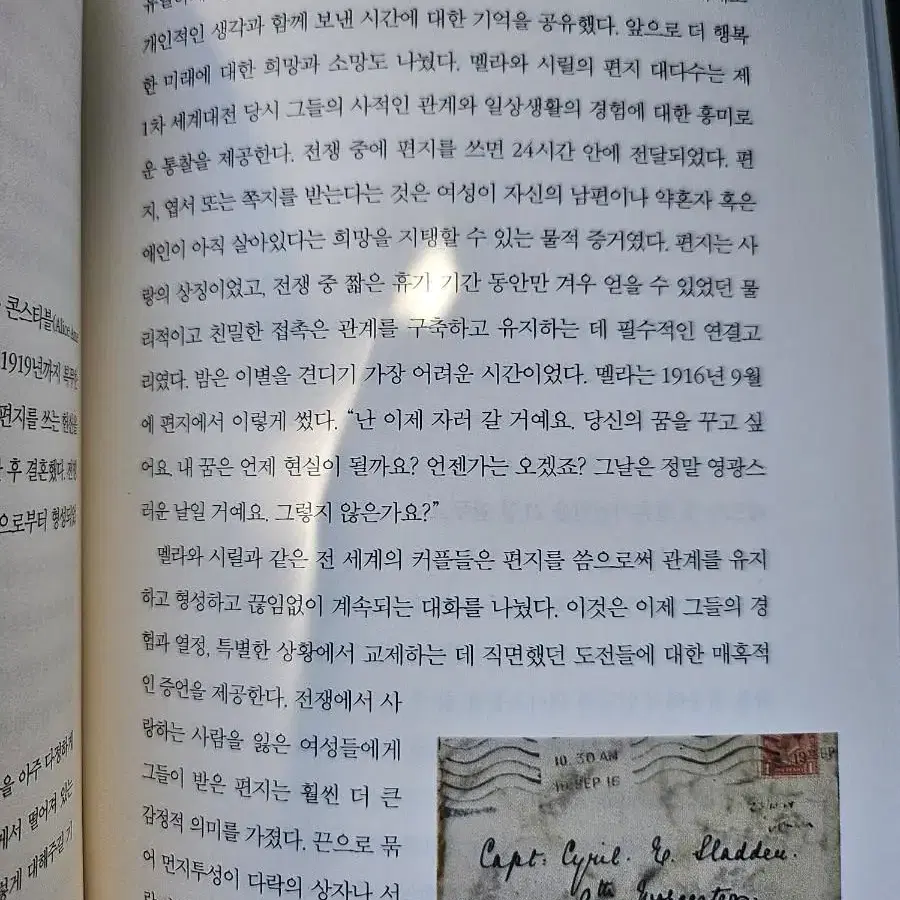 콘스타블(Alice
1919년까지
편지를 쓰는
후 결혼했다.
으로부터 형성되었
을 아주 다정하게
에서 떨어져 있는
게 대해주길
개인적인 생각과 함께 보낸 시간에 대한 기억을 공유했다. 앞으로 더 행복
한 미래에 대한 희망과 소망도 나눴다. 멜라와 시릴의 편지 대다수는 제
1차 세계대전 당시 그들의 사적인 관계와 일상생활의 경험에 대한 흥미로
운 통찰을 제공한다. 전쟁 중에 편지를 쓰면 24시간 안에 전달되었다. 편
지, 엽서 또는 쪽지를 받는다는 것은 여성이 자신의 남편이나 약혼자 혹은
애인이 아직 살아있다는 희망을 지탱할 수 있는 물적 증거였다. 편지는 사
랑의 상징이었고, 전쟁 중 짧은 휴가 기간 동안만 겨우 얻을 수 있었던 물
리적이고 친밀한 접촉은 관계를 구축하고 유지하는 데 필수적인 연결고
리였다. 밤은 이별을 견디기 가장 어려운 시간이었다. 멜라는 1916년 9월
에 편지에서 이렇게 썼다. “난 이제 자러 갈 거예요. 당신의 꿈을 꾸고 싶
어요. 내 꿈은 언제 현실이 될까요? 언젠가는 오겠죠? 그날은 정말 영광스
러운 날일 거예요. 그렇지 않은가요?”
멜라와 시릴과 같은 전 세계의 커플들은 편지를 씀으로써 관계를 유지
하고 형성하고 끊임없이 계속되는 대화를 나눴다. 이것은 이제 그들의 경
험과 열정, 특별한 상황에서 교제하는 데 직면했던 도전들에 대한 매혹적
인 증언을 제공한다. 전쟁에서 사
랑하는 사람을 잃은 여성들에게
그들이 받은 편지는 훨씬 더 큰
감정적 의미를 가졌다. 끈으로 묶
어 먼지투성이 다락의 상자나 서
10.30 AM
10 SEP 16
Capt: Cyril. E. Sladden.